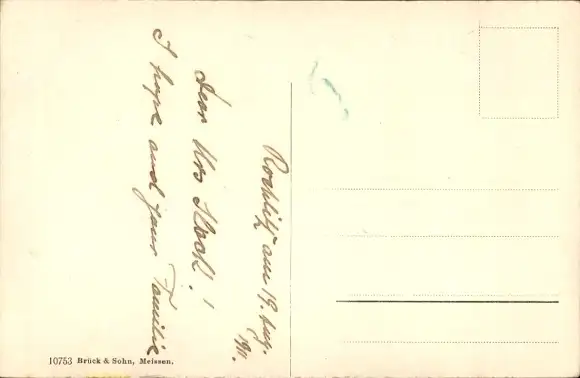 Rochlitz am 19. Aug.
Dear Mrs Koch!
I hope and your Familie
10753 Brück & Sohn, Meissen.